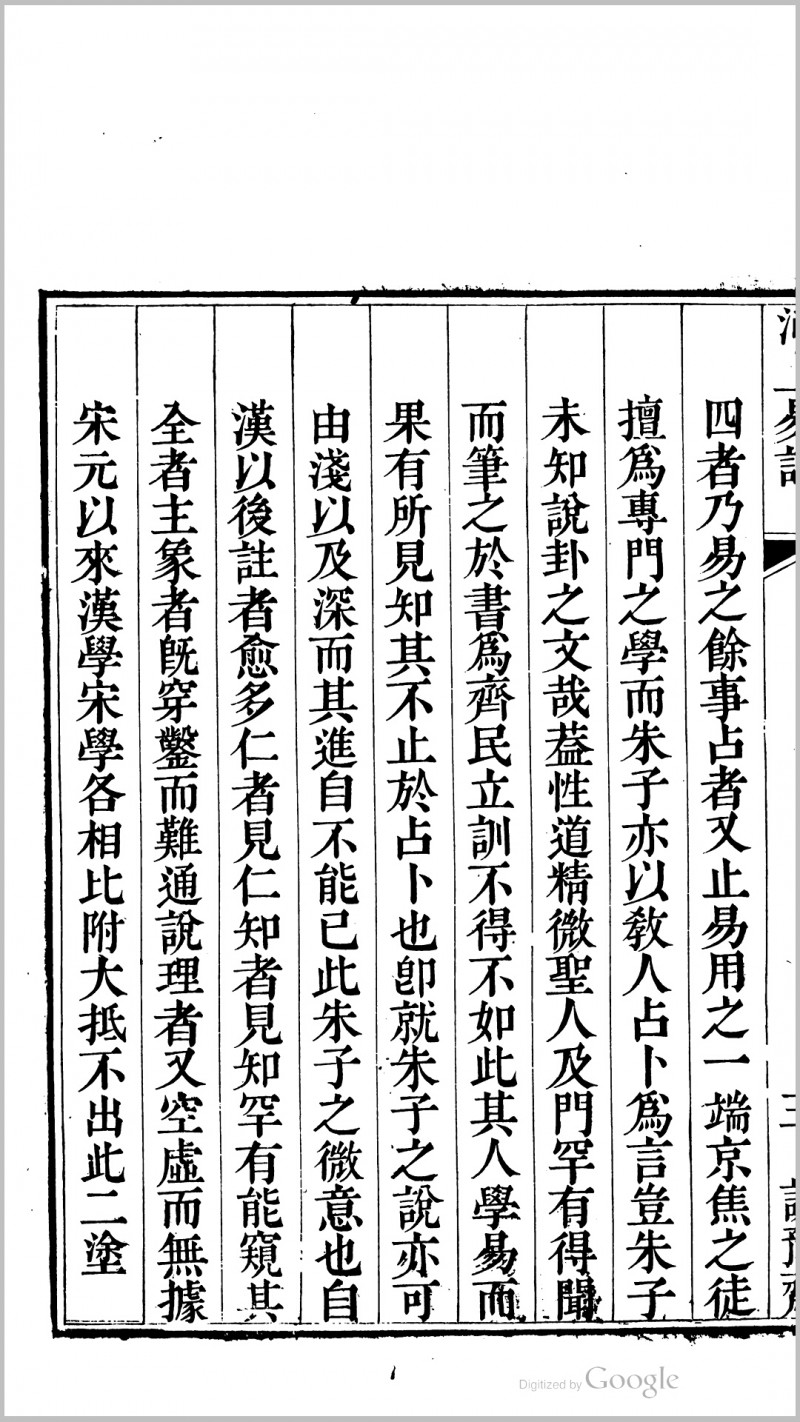 四者乃易之餘事占者又止易用之一端京焦之徒
擅爲專門之學而朱子亦以敎人占卜爲言豈朱子
未知說卦之文哉葢性道精微聖人及門罕有得聞
而筆之於書爲齊民立訓不得不如此其人學易而
果有所見知其不止於占卜也卽就朱子之說亦可
由淺以及深而其進自不能已此朱子之微意也自
漢以後註者愈多仁者見仁知者見知罕有能窺其
全者主象者旣穿鑿而難通說理者又空虛而無據
宋元以來漢學宋學各相比附大抵不出此二塗
Digitized by Google